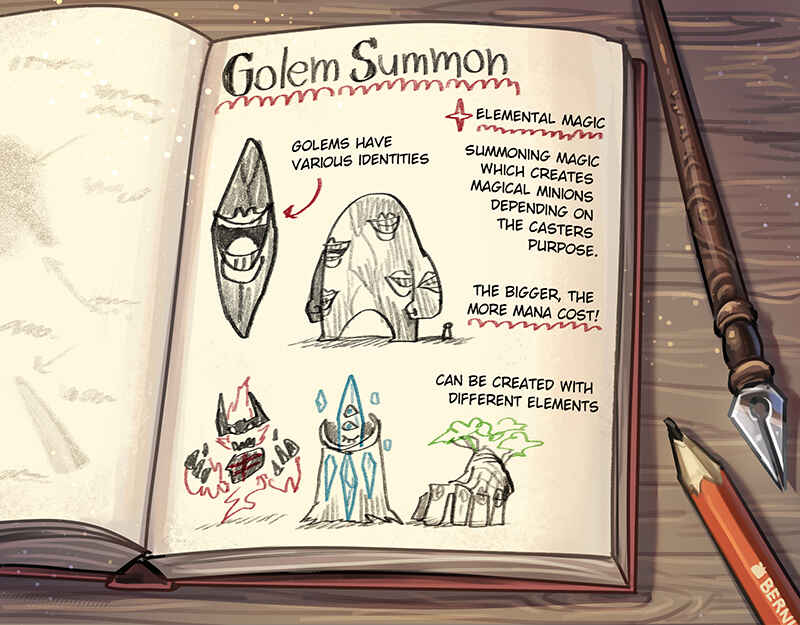 Golem Summon
ELEMENTAL MAGIC
GOLEMS HAVE
VARIOUS IDENTITIES
SUMMONING MAGIC
WHICH CREATES
MAGICAL MINIONS
DEPENDING ON
THE CASTERS
PURPOSE.
THE BIGGER, THE
MORE MANA COST!
CAN BE CREATED WITH
DIFFERENT ELEMENTS